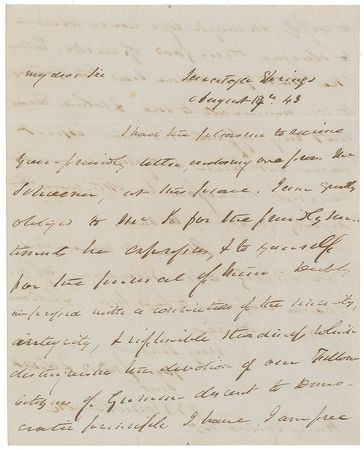 my dear Sir Saratoga Springs
August 19th 43
I had the pleasure to receive
your friendly letter, enclosing one from Mr
at this place. I am greatly
obliged to Mr K for the friendly sen-
timents he expresses, & to yourself
for the perusal of them. Deeply
impressed with a conviction of the sincerity,
integrity, & inflexible steadiness which
distinguishes the devotion of our Fellow
citizens of German descent to Demo-
cratic principle I have, I am free